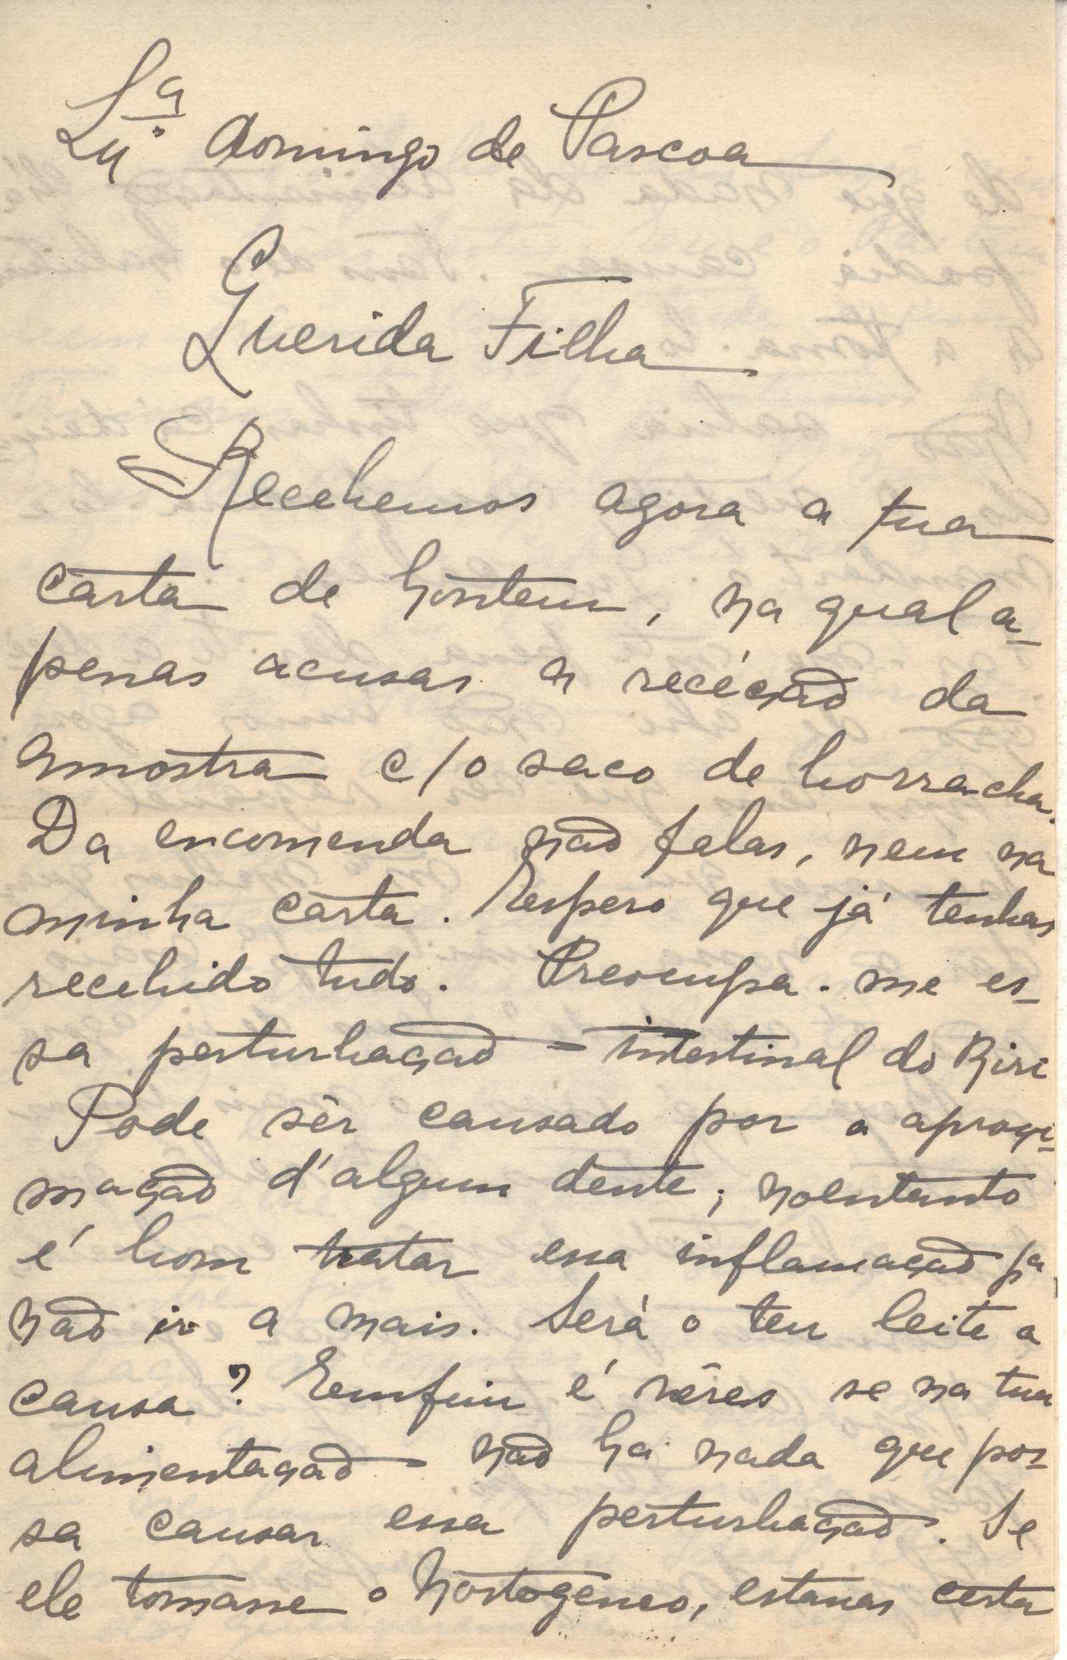 Lxª Domingo de Pascoa
Querida Filha
Recebemos agora a tua
carta de hontem, na qual a-
penas acusas a recéção da
amostra c/o saco de borracha.
Da encomenda não falas, nem na
minha carta. Espero que já tenhas
recebido tudo. Preocupa-me es-
sa perturbação - intestinal do Riri
Pode sêr causado por a aproxi-
mação d'algum dente; noentanto
é bom tratar essa inflamação pª
não ir a mais. Será o teu leite a
causa? Emfim é vêres se na tua
alimentação - não ha nada que pos-
sa causar essa perturbação. Se
ele tomasse o estavas certa